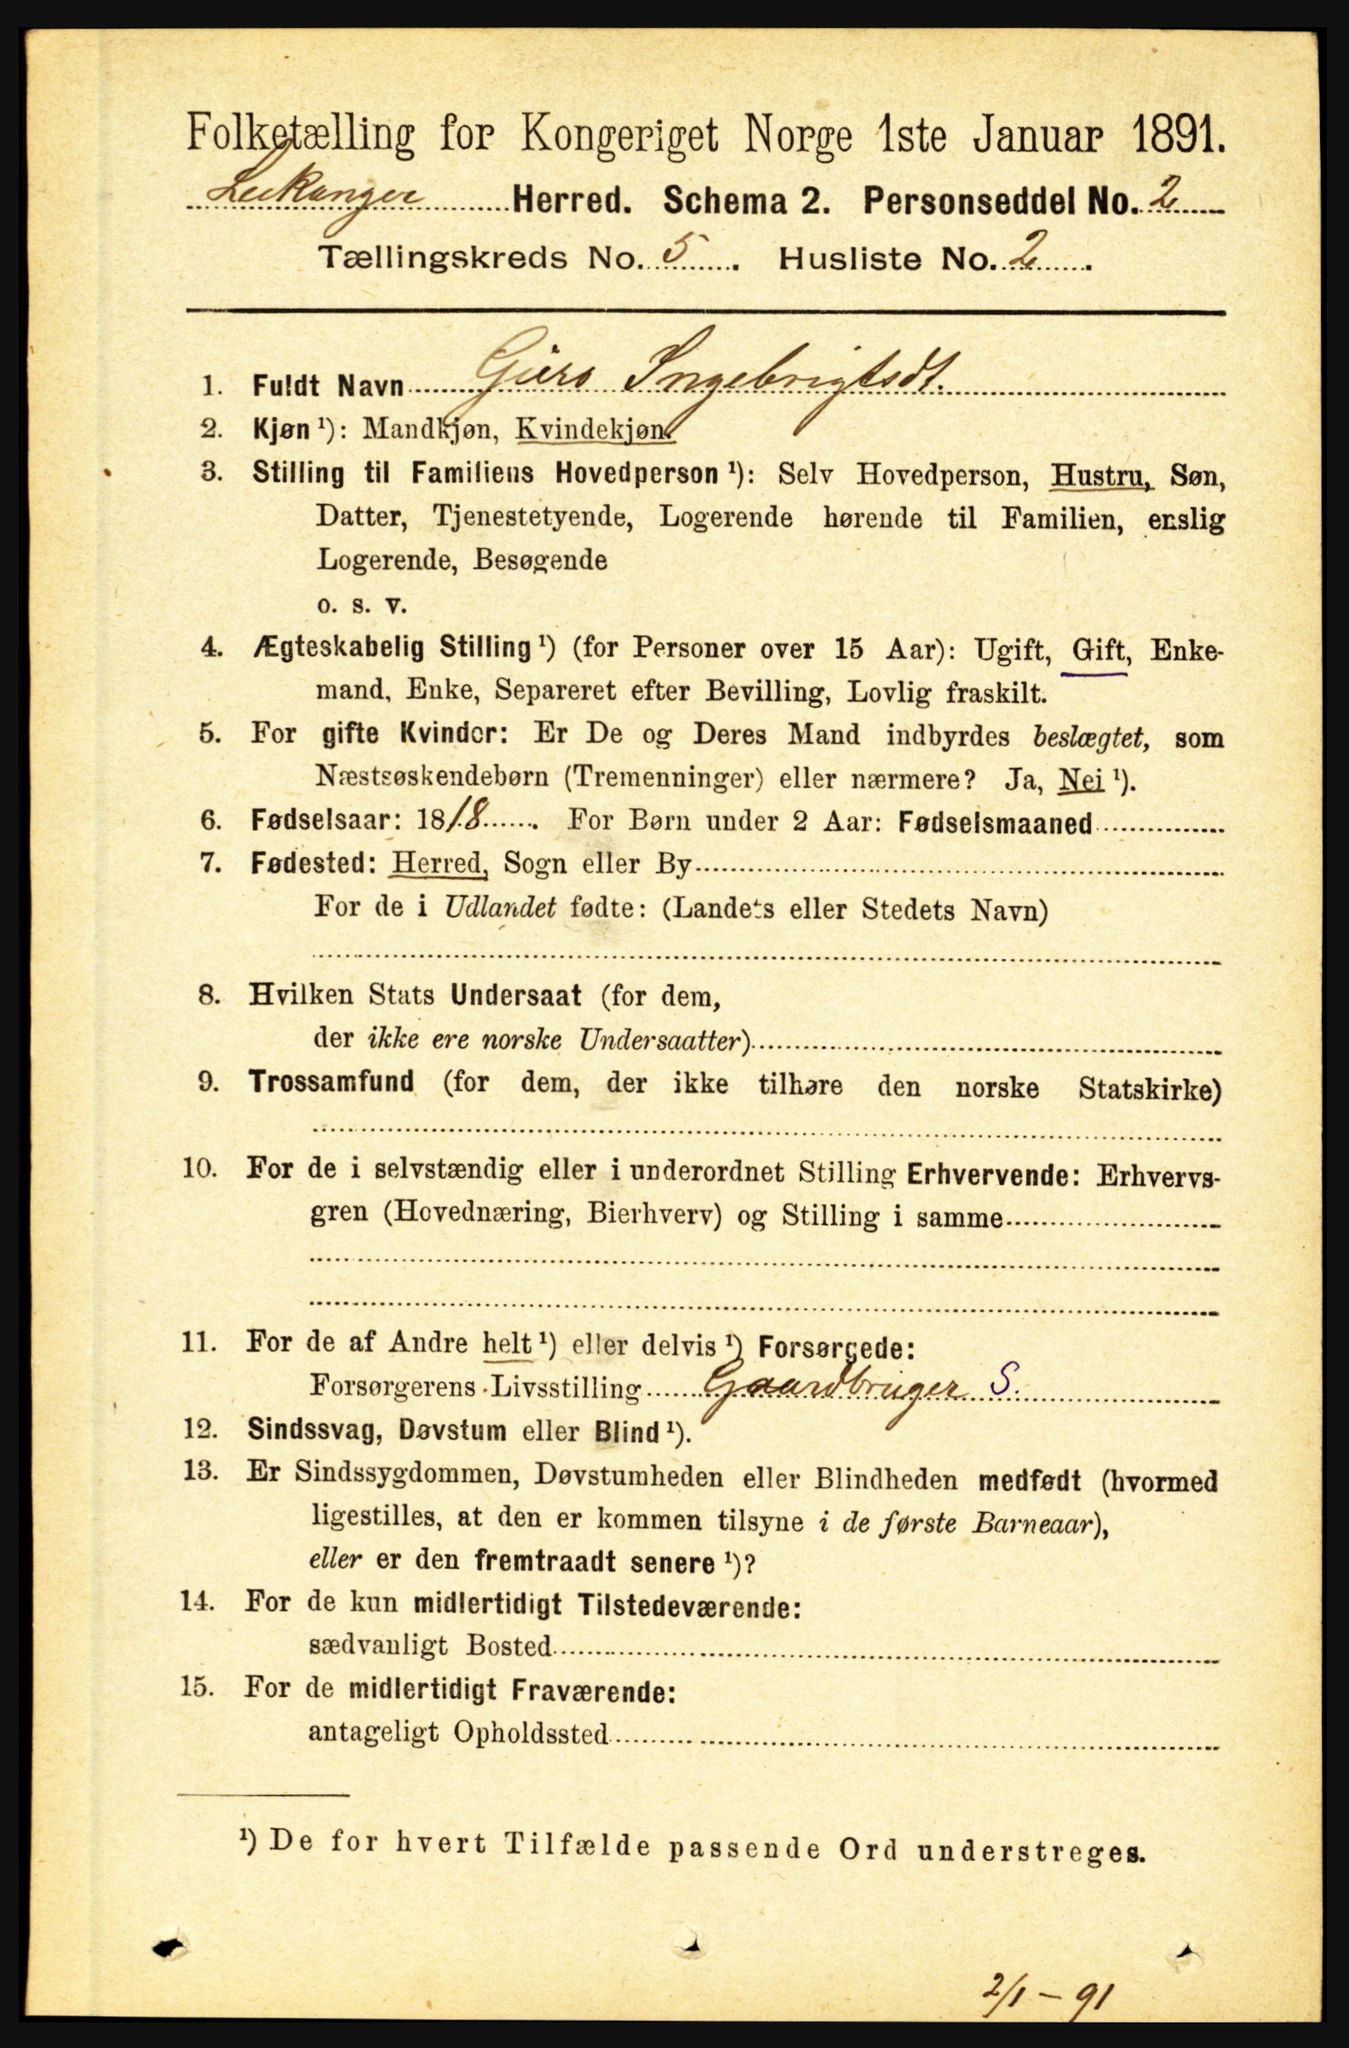 Folketælling for Kongeriget Norge 1ste Januar 1891.
Leikanger Herred. Schema 2. Personseddel No. 2
Tællingskreds No. 5. Husliste No. 2.
1. Fuldt Navn Ingebrigtsdt.
2. Kjøn ¹): Mandkjøn, Kvindekjøn.
3. Stilling til Familiens Hovedperson ¹): Selv Hovedperson, Hustru, Søn,
Datter, Tjenestetyende, Logerende hørende til Familien, enslig
Logerende, Besøgende
o. s. v.
4. Ægteskabelig Stilling ¹) (for Personer over 15 Aar): Ugift, Gift, Enke-
mand, Enke, Separeret efter Bevilling, Lovlig fraskilt.
5. For gifte Kvinder: Er De og Deres Mand indbyrdes beslægtet, som
Næstsøskendebørn (Tremenninger) eller nærmere? Ja, Nei ¹).
6. Fødselsaar: 1818. For Børn under 2 Aar: Fødselsmaaned
7. Fødested: Herred, Sogn eller By
For de i Udlandet fødte: (Landets eller Stedets Navn)
8. Hvilken Stats Undersaat (for dem,
der ikke ere norske Undersaatter)
9. Trossamfund (for dem, der ikke tilhøre den norske Statskirke)
10. For de i selvstændig eller i underordnet Stilling Erhvervende: Erhvervs-
gren (Hovednæring, Bierhverv) og Stilling i samme
11. For de af Andre helt ¹) eller delvis ¹) Forsørgede:
Forsørgerens Livsstilling Gaardbruger S.
12. Sindssvag, Døvstum eller Blind ¹).
13. Er Sindssygdommen, Døvstumheden eller Blindheden medfødt (hvormed
ligestilles, at den er kommen tilsyne i de første Barneaar),
eller er den fremtraadt senere ¹)?
14. For de kun midlertidigt Tilstedeværende:
sædvanligt Bosted
15. For de midlertidigt Fraværende:
antageligt Opholdssted
¹) De for hvert Tilfælde passende Ord understreges.
2/1 - 91